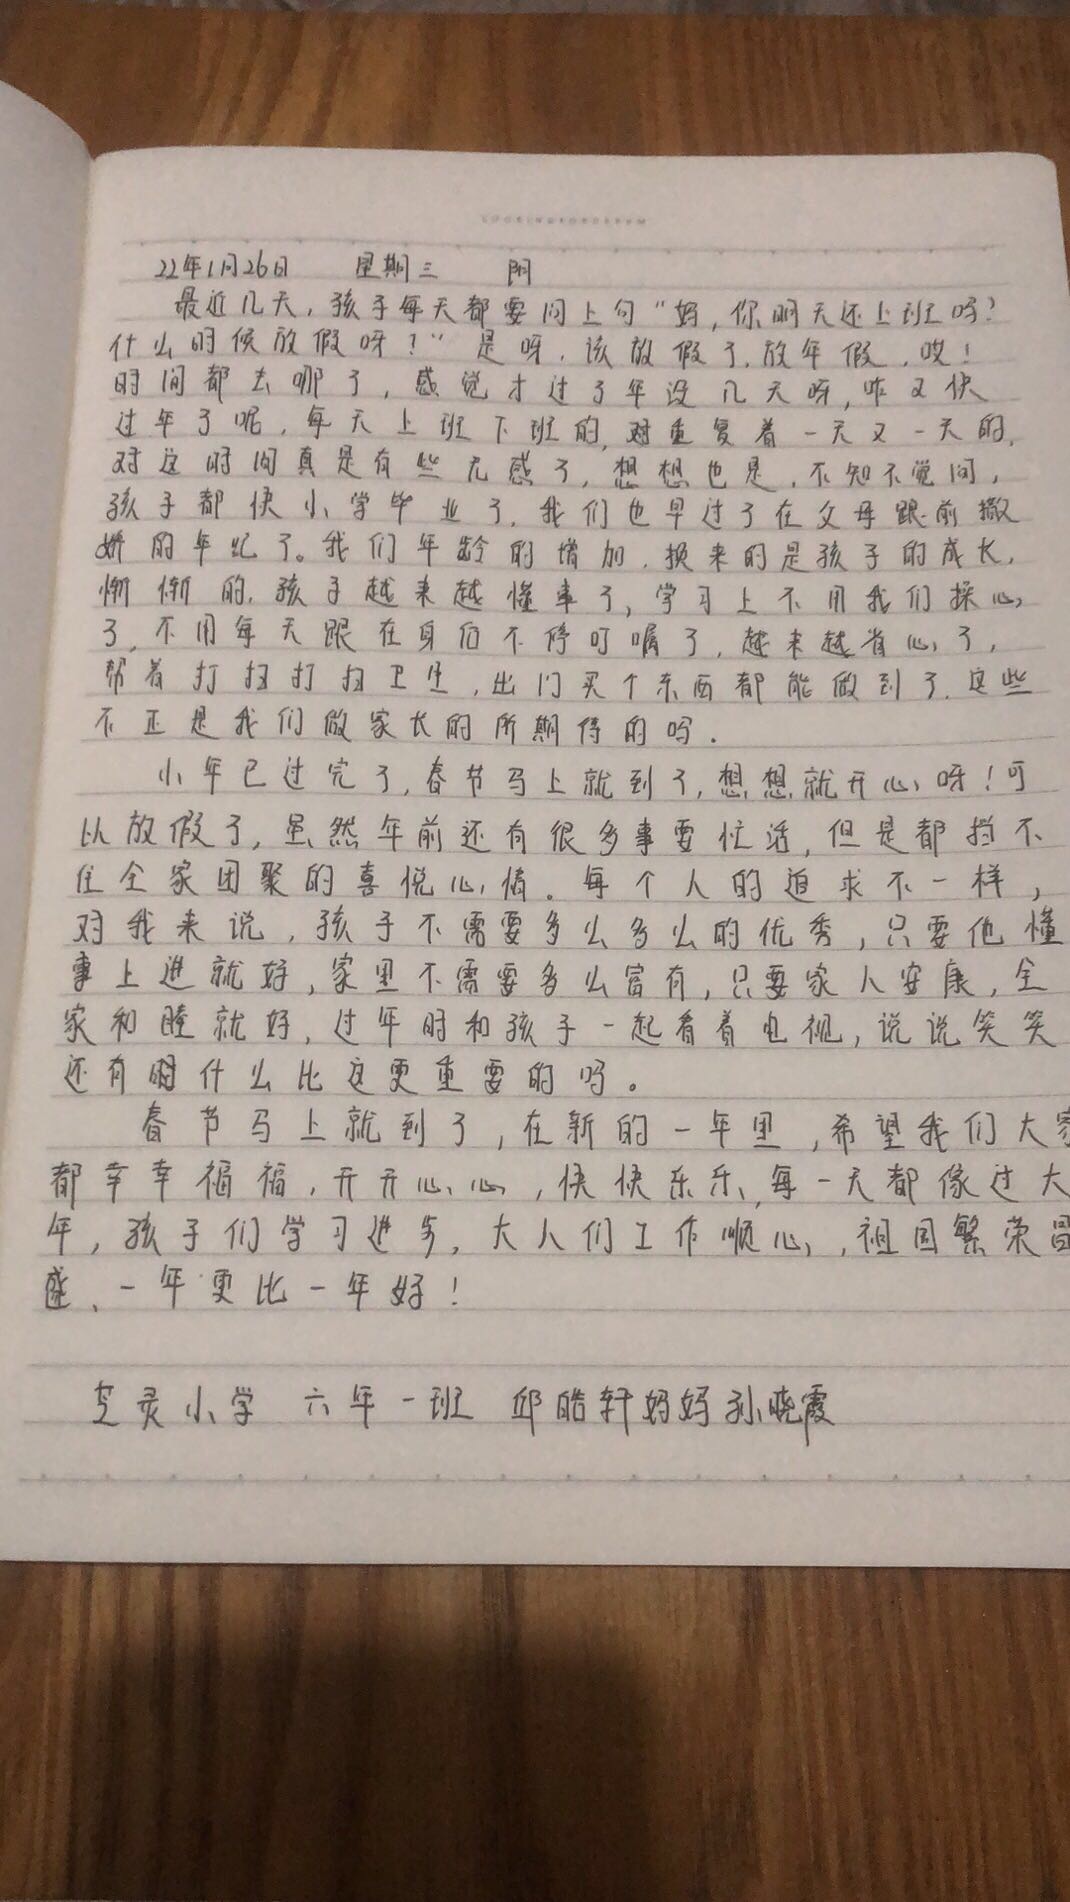 LOOKINGFORDREAM
22年1月26日 星期三 阴
最近几天，孩子每天都要问上句“妈，你明天还上班吗？
什么时候放假呀？”是呀，该放假了，放年假，哎！
时间都去哪了，感觉才过了年没几天呀，咋又快
过年了呢，每天上班下班的，对重复着一天又一天的，
对这时间真是有些无感了，想想也是，不知不觉间，
孩子都快小学毕业了，我们也早过了在父母跟前撒
娇的年纪了。我们年龄的增加，换来的是孩子的成长，
惭惭的，孩子越来越懂事了，学习上不用我们操心
了，不用每天跟在身后不停叮嘱了，越来越省心了，
帮着打扫打扫卫生，出门买个东西都能做到了，这些
不正是我们做家长的所期待的吗.
小年已过完了，春节马上就到了，想想就开心呀！可
以放假了，虽然年前还有很多事要忙活，但是都挡不
住全家团聚的喜悦心情。每个人的追求不一样，
对我来说，孩子不需要多么多么的优秀，只要他懂
事上进就好，家里不需要多么富有，只要家人安康，全
家和睦就好，过年时和孩子一起看着电视，说说笑笑
还有什么比这更重要的吗。
春节马上就到了，在新的一年里，希望我们大家
都幸幸福福，开开心心，快快乐乐，每一天都像过大
年，孩子们学习进步，大人们工作顺心，祖国繁荣昌
盛、一年更比一年好！
芝灵小学 六年一班 邱皓轩妈妈孙晓霞